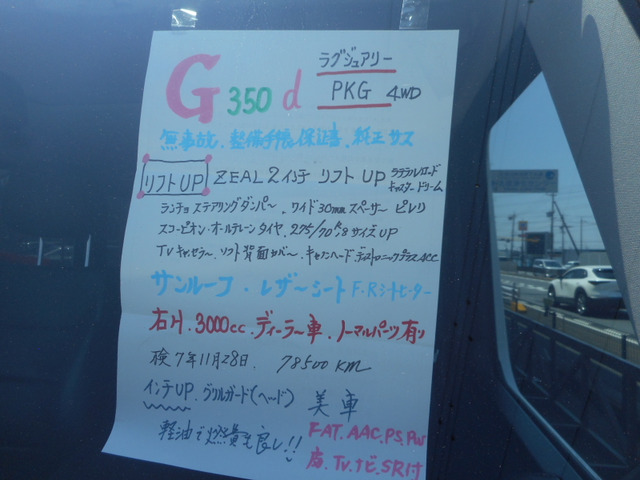 G 350 d ラグジュアリー PKG 4WD
無事故、整備手帳、保証書、純正サス
リフトUP ZEAL 2インチ リフトUP ラテラルロッド キャスタードリーム
ランチョ ステアリングダンパー、ワイド30mmスペーサー ピレリ
スコーピオン・オールテレーンタイヤ、275/70 サイズUP
TVキャンセラー、ソフト背面カバー、キャノンヘード、ディストロニックプラスACC
サンルーフ・レザーシート F・Rシートヒーター
右H、3000cc、ディーラー車、ノーマルパーツ有り
検7年11月28日、78500KM
インチUP、グリルガード(ヘード) 美車
軽油で燃費も良し!!
F-AT、AAC、PS、PW
席、TV、ナビ、SR付